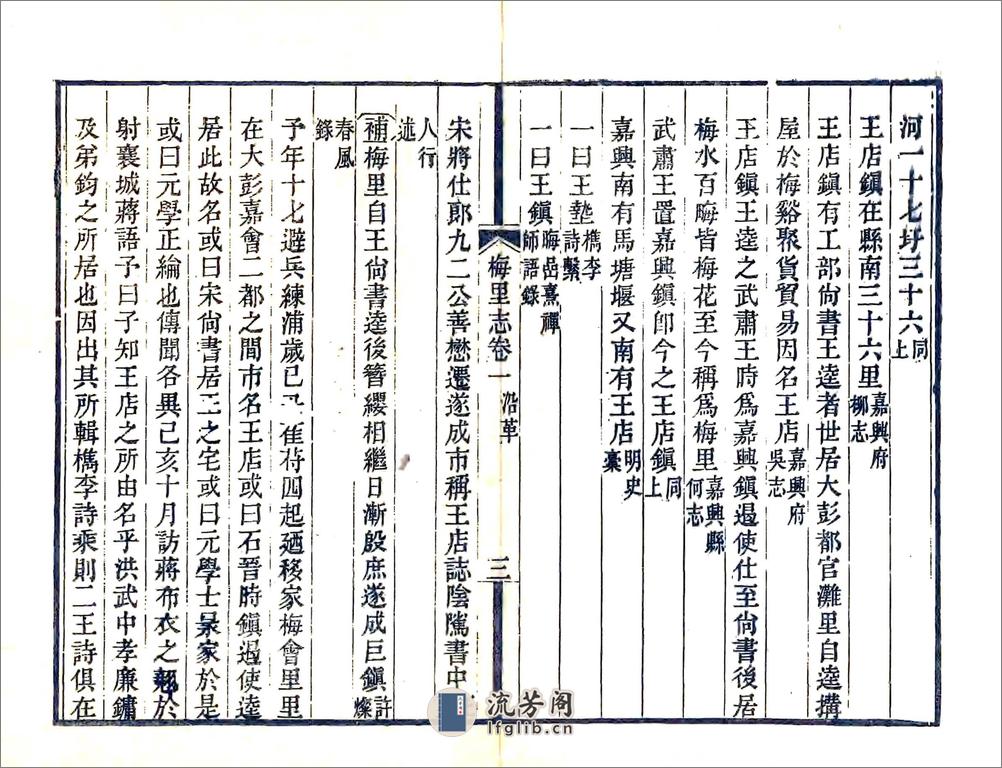 河一十七圩三十六同上
王店鎮在縣南三十六里嘉興府柳志
王店鎮有工部尙書王逵者世居大彭都官灘里自逵搆
屋於梅谿聚貨貿易因名王店嘉興府吳志
王店鎮王逵之武肅王時爲嘉興鎮遏使仕至尙書後居
梅水百畮皆梅花至今稱爲梅里嘉興縣何志
武肅王置嘉興鎮卽今之王店鎮同上
嘉興南有馬塘堰又南有王店明史稾
一曰王墊檇李詩繫
一曰王鎮晦嵒熹禪師語錄
梅里志卷一 沿革 三
宋將仕郞九二公善懋遷遂成市稱王店誌陰隲書中
人行述
補梅里自王尙書逵後簪纓相繼日漸殷庶遂成巨鎮許燦
春風錄
予年十七避兵練浦歲己丑萑苻四起廼移家梅會里里
在大彭嘉會二都之間市名王店或曰石晉時鎮遏使逵
居此故名或曰宋尙書居正之宅或曰元學士杲家於是
或曰元學正綸也傳聞各異己亥十月訪蔣布衣之翹於
射襄城蔣語予曰子知王店之所由名乎洪武中孝廉鏞
及弟鈞之所居也因出其所輯檇李詩乘則二王詩俱在
流芳阁
lfglib.cn